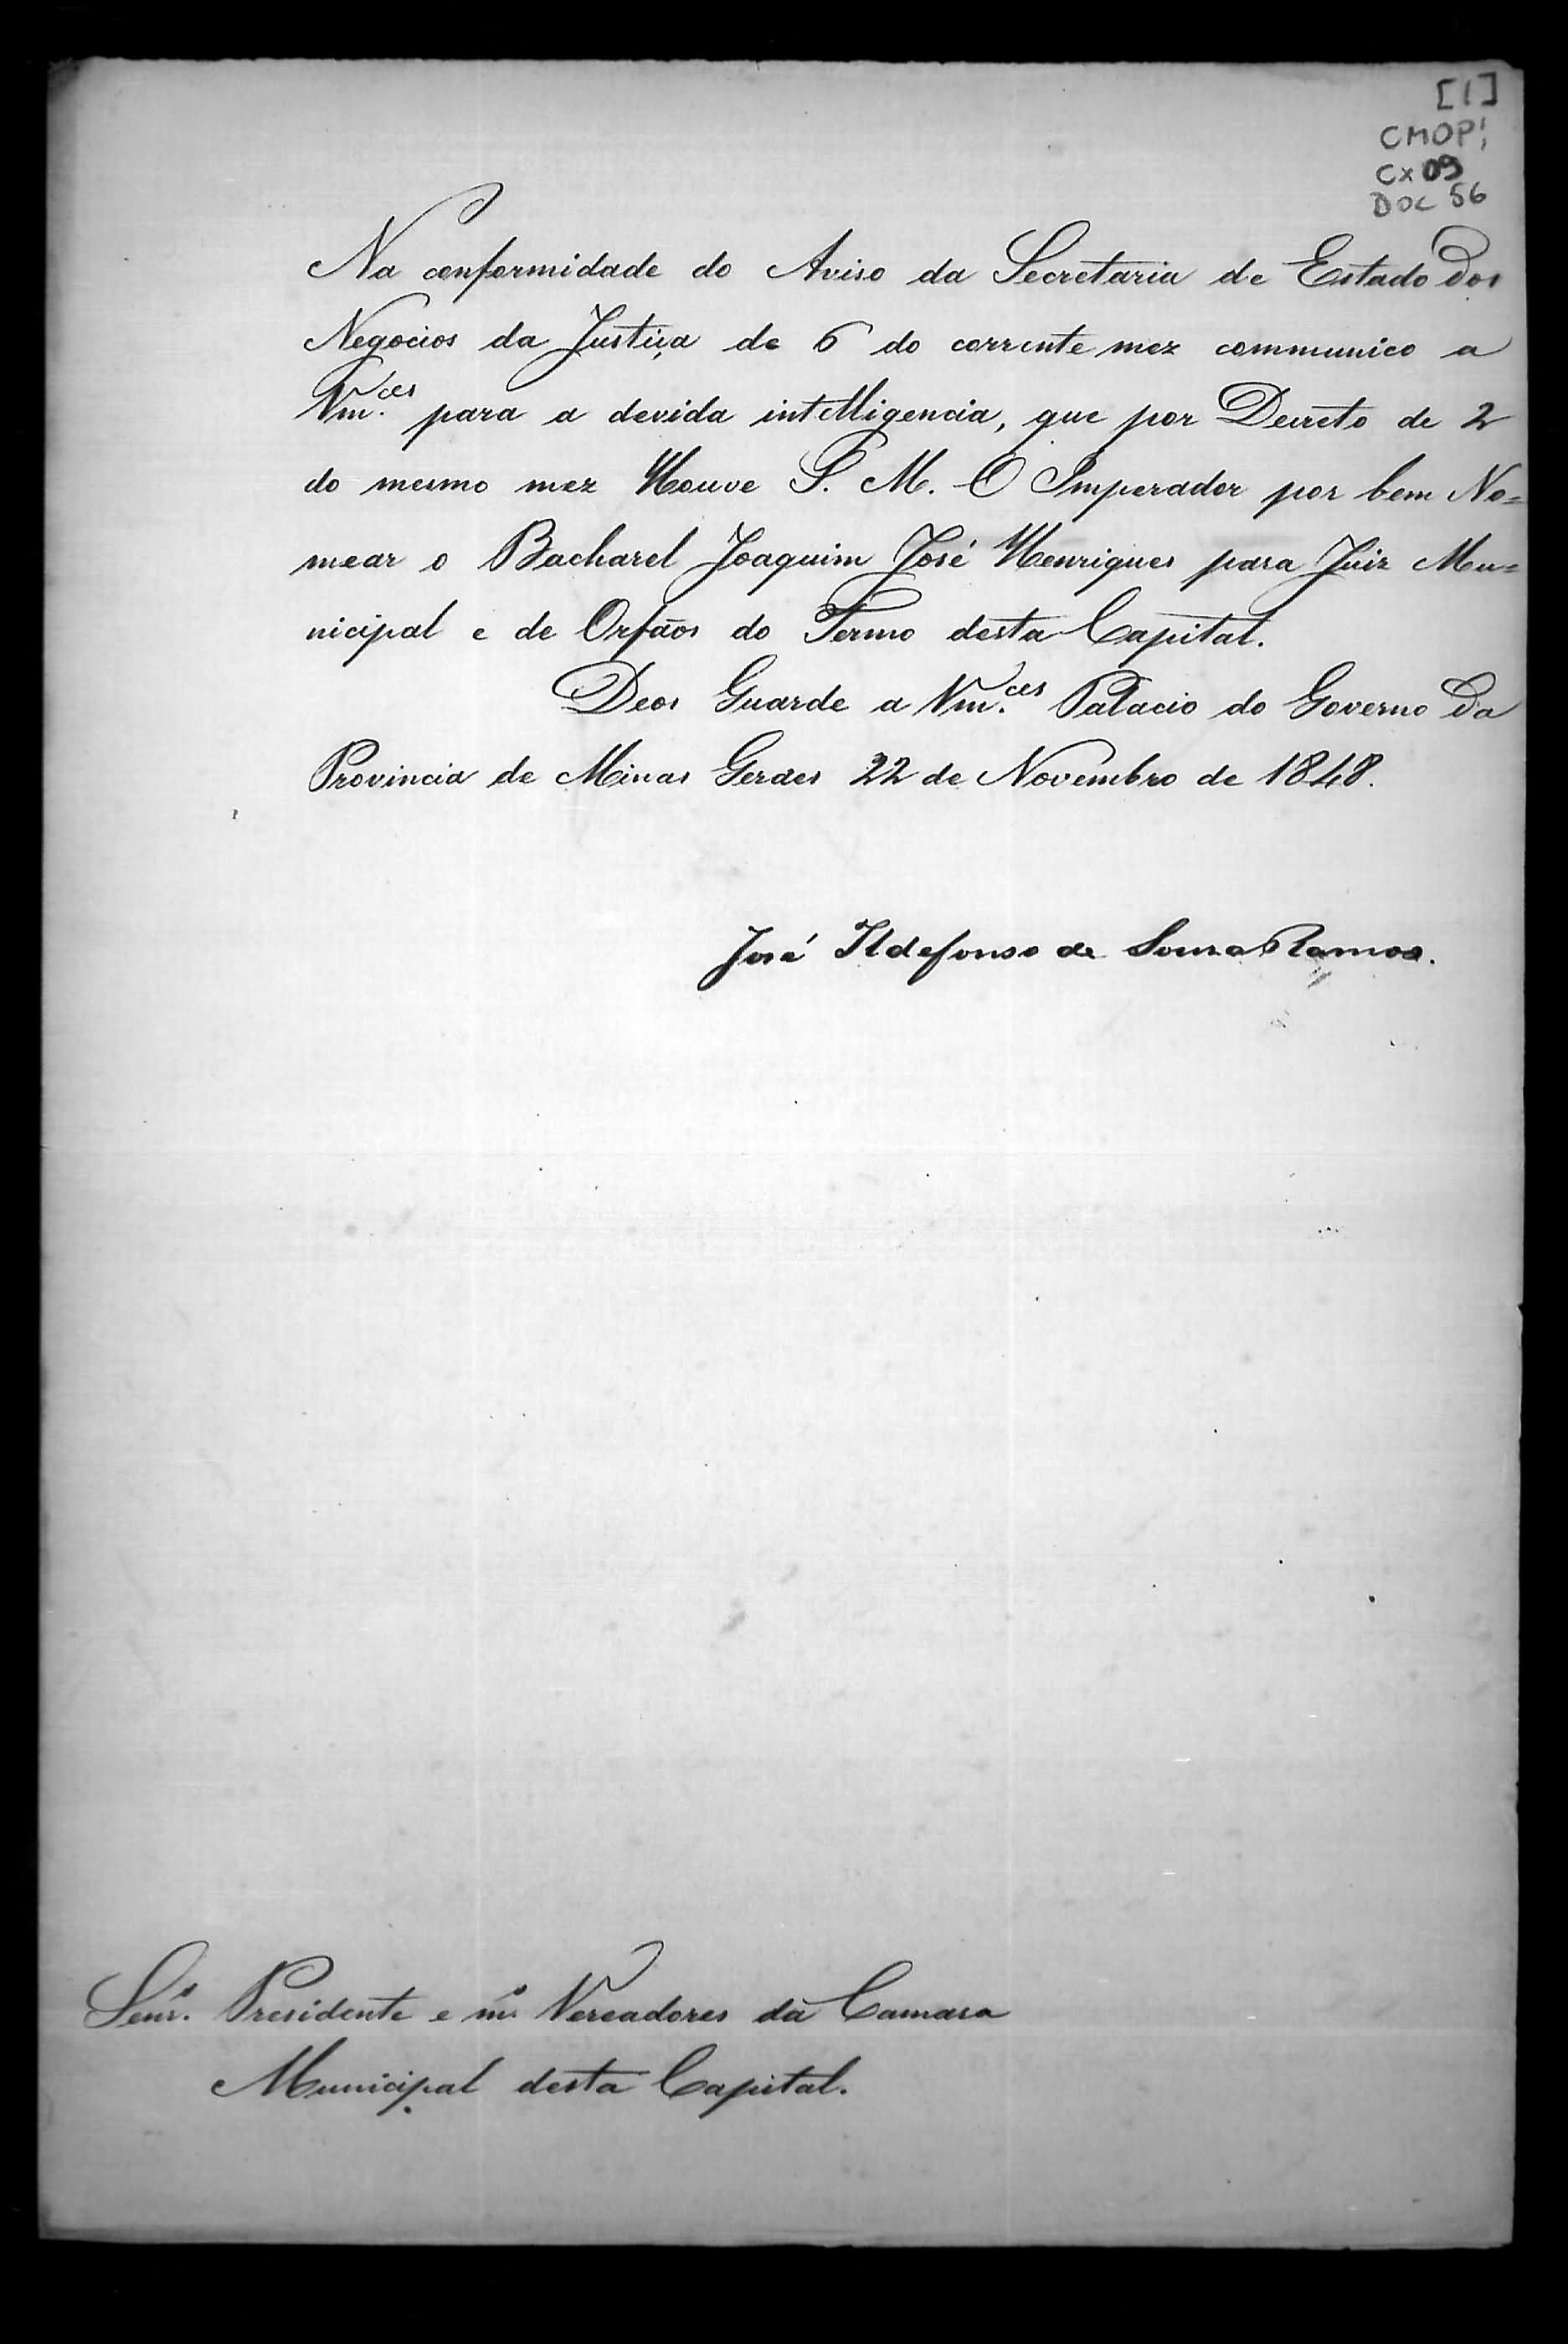 [1]
CMOP!
Cx 09
DOC 56
Na conformidade do Aviso da Secretaria de Estado dos
Negocios da Justiça de 6 do corrente mez communico a
Vm.ces para a devida intelligencia, que por Decreto de 2
do mesmo mez Houve S. M. O Imperador por bem No=
mear o Bacharel Joaquim José Henriques para Juiz Mu=
nicipal e de Orfãos do Termo desta Capital.
Deos Guarde a Vm.ces Palacio do Governo da
Provincia de Minas Geraes 22 de Novembro de 1848.
José Ildefonso de Souza Ramos.
Senr.s Presidente e m.s Vereadores da Camara
Municipal desta Capital.